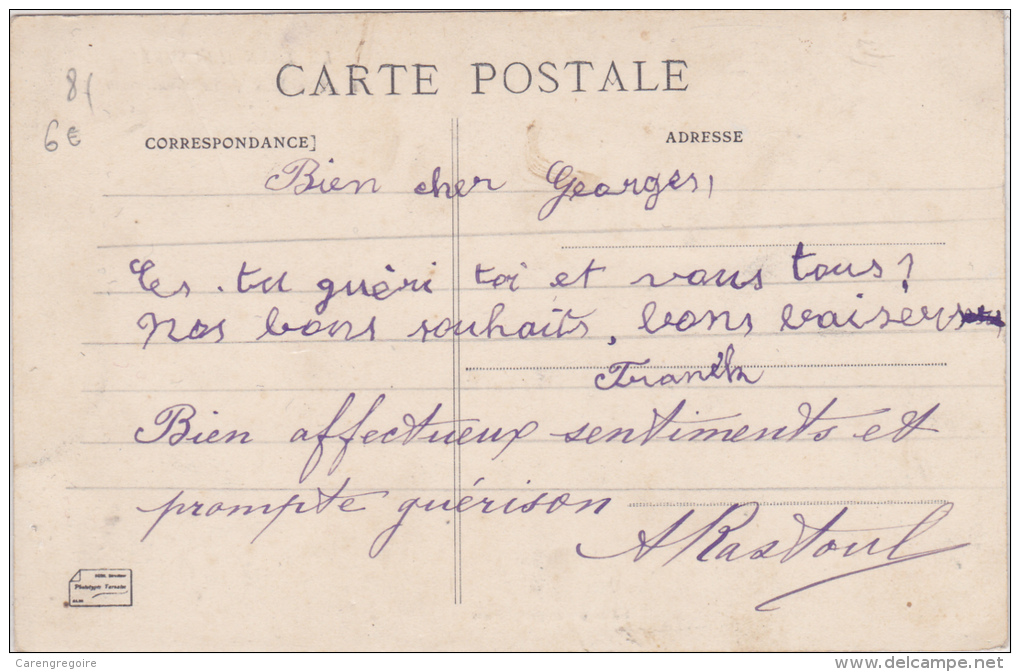 81
6€
CARTE POSTALE
CORRESPONDANCE]
ADRESSE
Bien cher Georges,
Es-tu guéri toi et vous tous?
Nos bons souhaits, bons baisers
Bien affectueux sentiments et
prompte guérison
A Rastoul
Phototypie Tarnaise
Carengregoire
www.delcampe.net